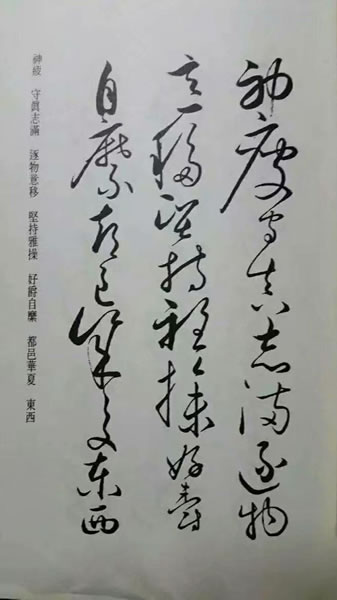 神疲守真志滿逐物
意移堅持雅操好爵
自縻都邑華夏東西
神疲 守眞志滿 逐物意移 堅持雅操 好爵自縻 都邑華夏 東西